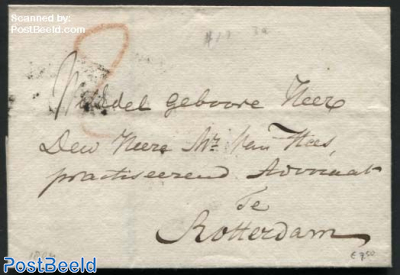 Scanned by:
PostBeeld.com
Weledel Geboore Heer
Den Heere Mr. Van Hees,
practiseerend Advocaat
Te
Rotterdam
€ 7.50
PostBeeld